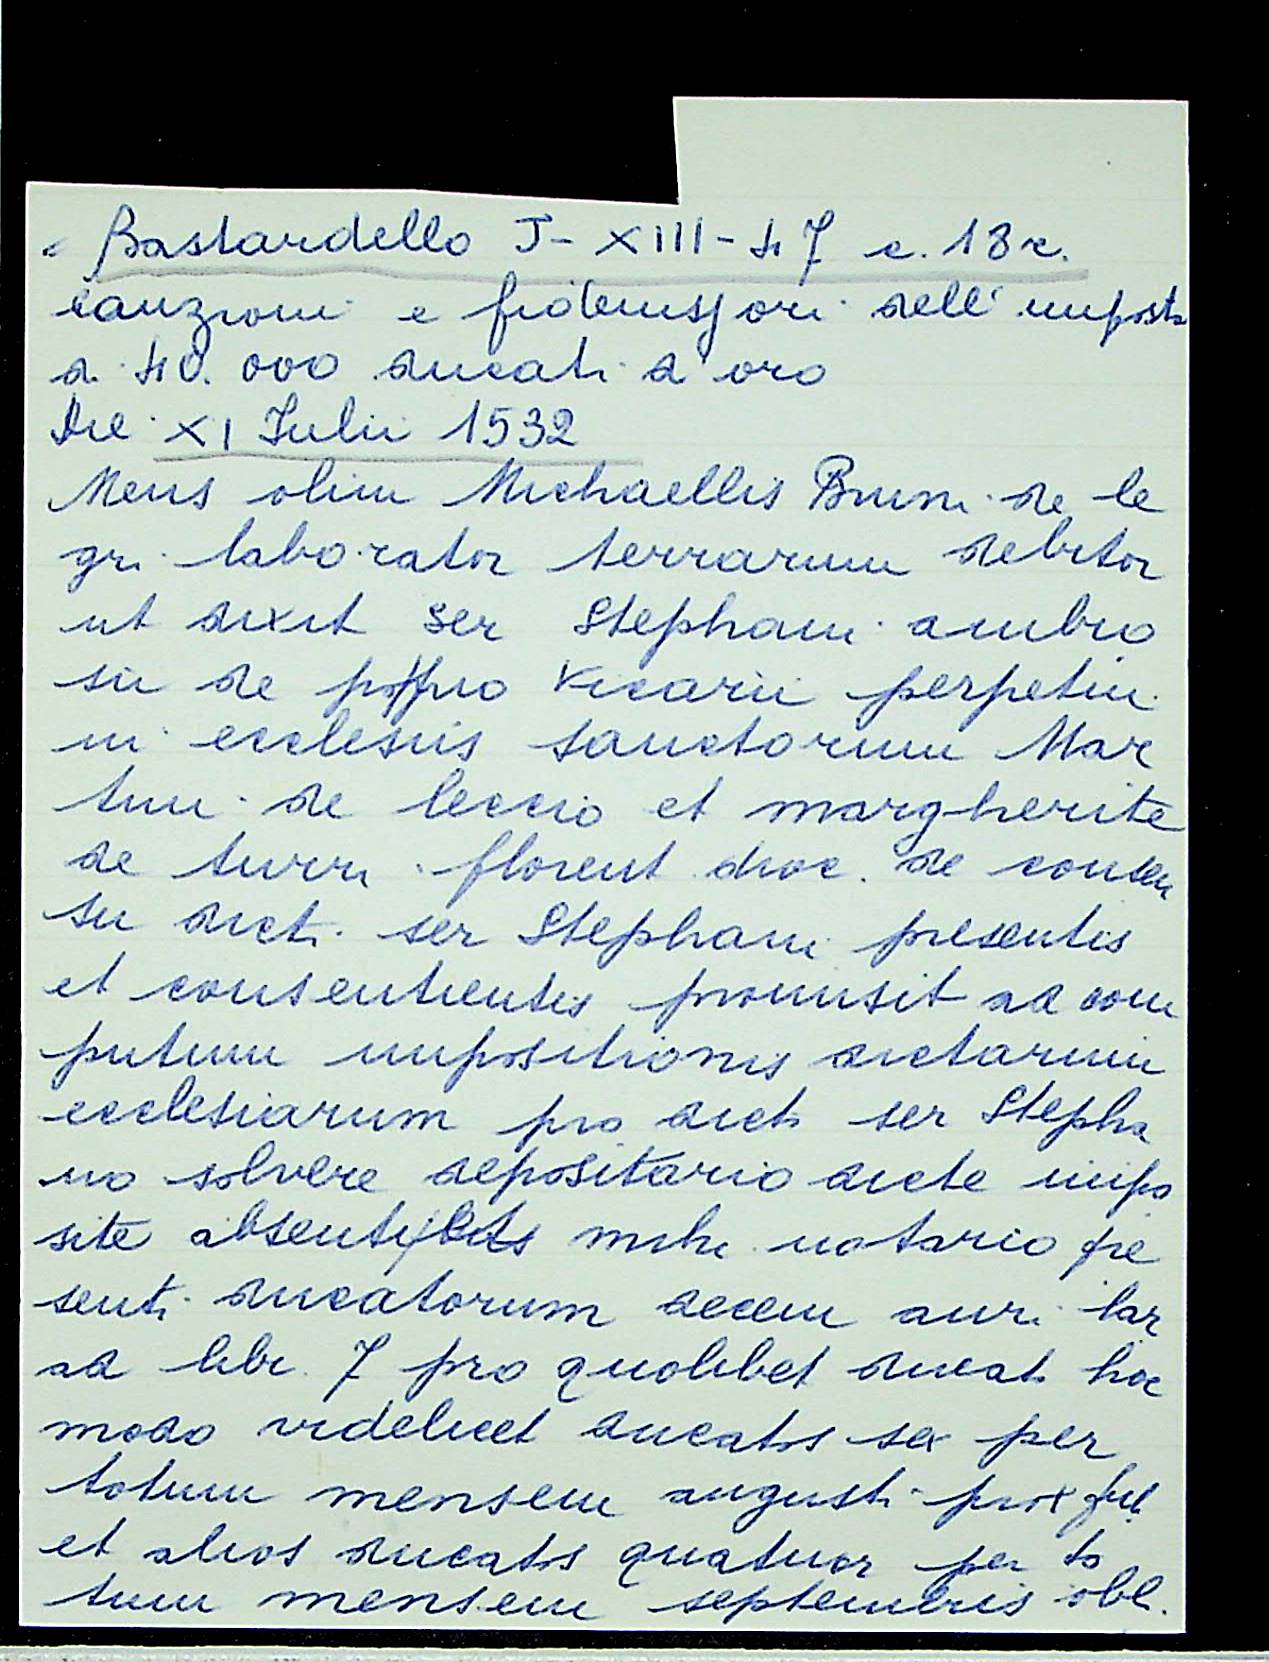 Bastardello J-XIII-47 c. 18r.
cauzioni e fideiussori dell' imposta
di 40.000 ducati d'oro
Die XI Iulii 1532
Meus olim Michaellis Bruni de le
gri laborator terrarum debitor
ut dixit ser Stephani ambro
sii de vicarii perpetui
in ecclesiis sanctorum Mar
tini de leccio et margherite
de turri florent dioc. de consen
su dicti ser Stephani presentis
et consentientis promisit ad com
putum impositionis dictarum
ecclesiarum pro dicto ser Stepha
no solvere depositario dicte impo
site mihi notario pre
senti ducatorum decem auri lar
ad libr. 7 pro quolibet ducat hoc
modo videlicet ducatos sex per
totum mensem augusti prox fut
et alios ducatos quatuor per to
tum mensem septembris obl.